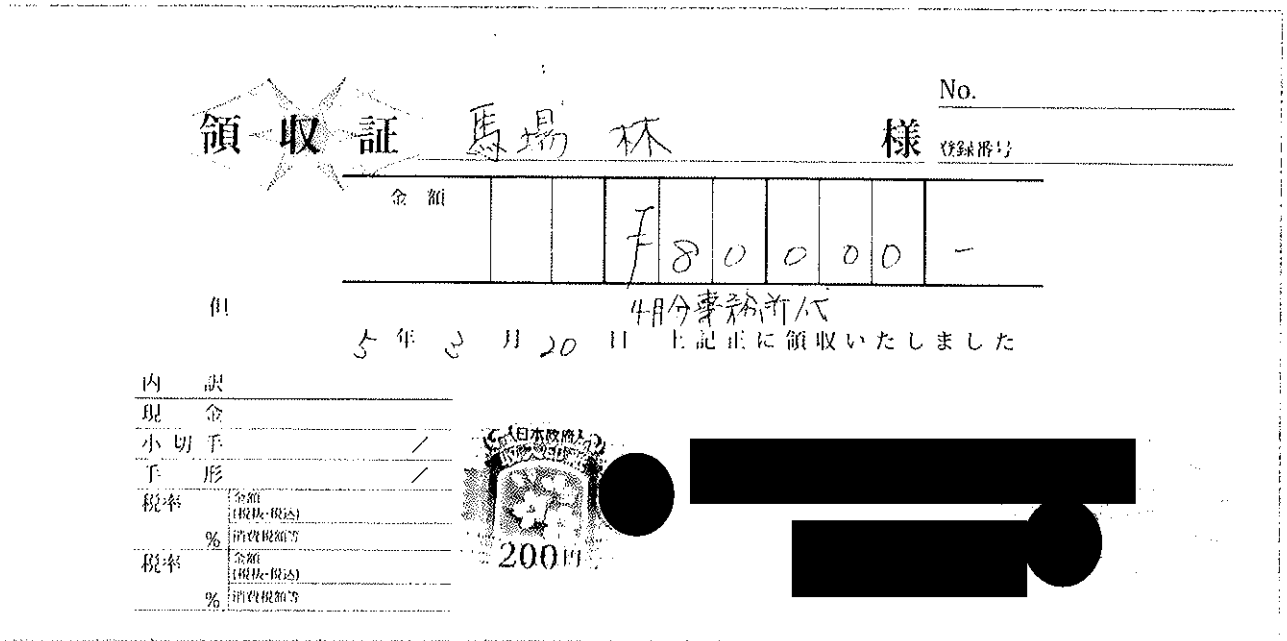 No.
領収証 馬場 林 様
登録番号
金額 ¥80000-
但 4月分事務所代
5年3月20日 上記正に領収いたしました
内訳
現金
小切手 /
手形 /
税率 金額(税抜・税込)
% 消費税額等
税率 金額(税抜・税込)
% 消費税額等
日本政府
収入印紙
200円